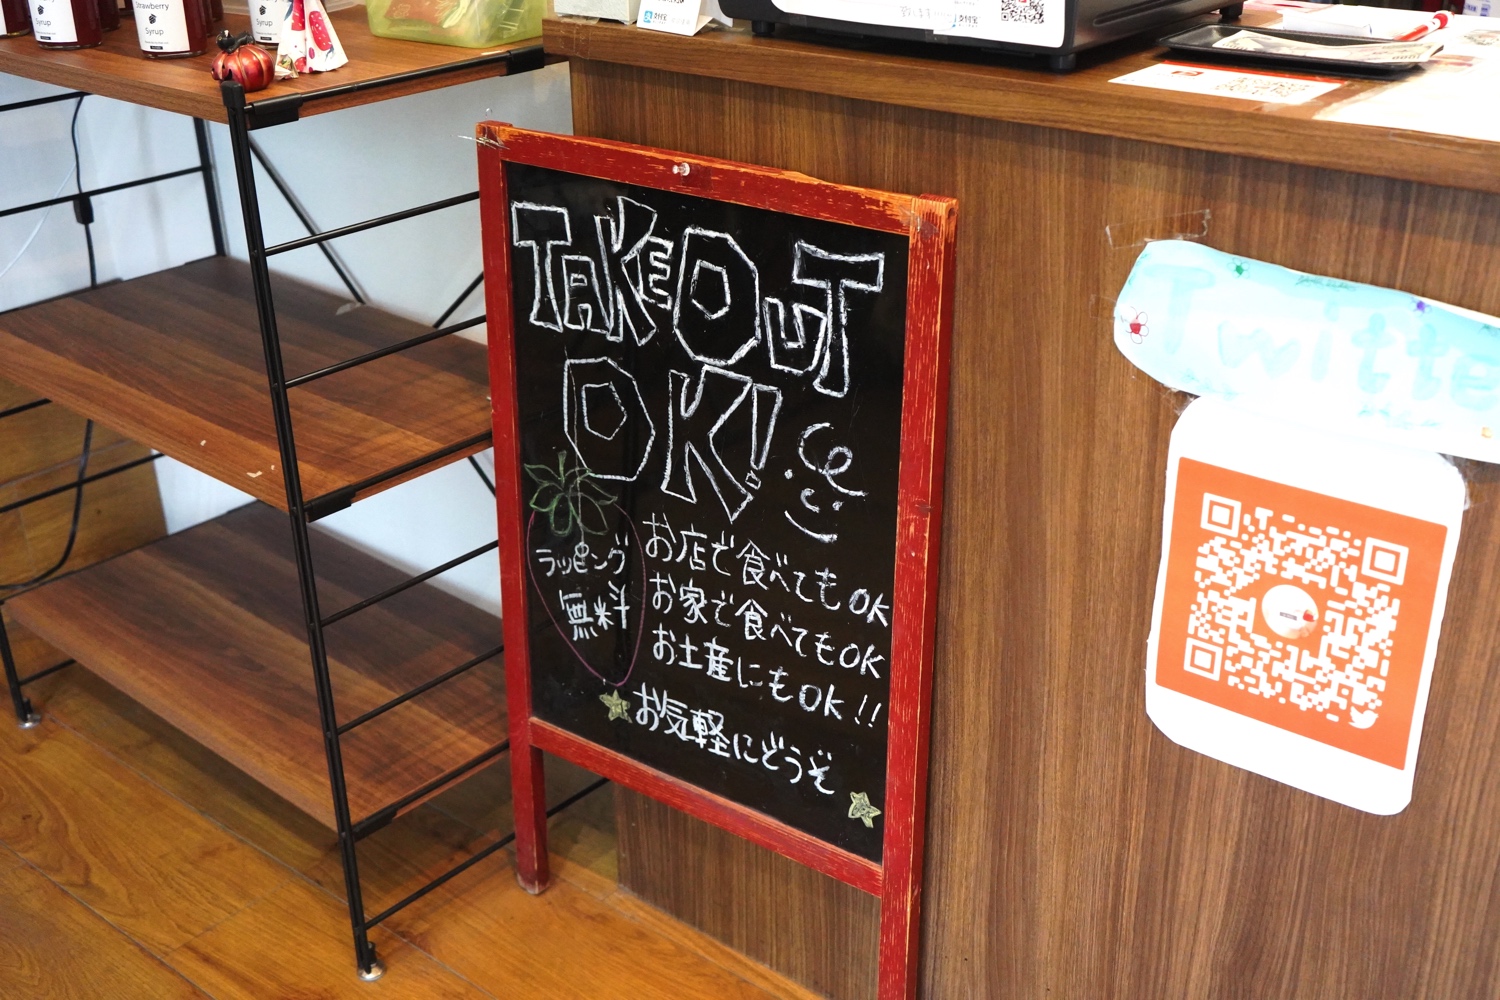 Strawberry
Syrup
Syrup
Syrup
TAKEOUT
OK!
ラッピング
無料
お店で食べてもOK
お家で食べてもOK
お土産にもOK!!
お気軽にどうぞ
Twitte